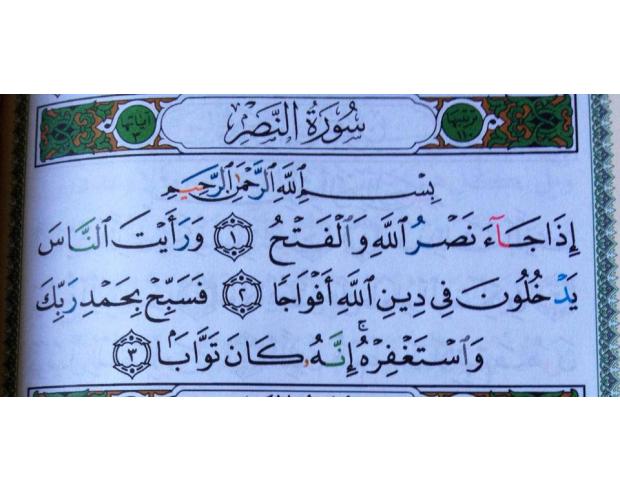 آياتها ٣
سُورَةُ النَّصْرِ
ترتيبها ١١٠
بِسْمِ ٱللَّهِ ٱلرَّحْمَٰنِ ٱلرَّحِيمِ
إِذَا جَآءَ نَصْرُ ٱللَّهِ وَٱلْفَتْحُ ١ وَرَأَيْتَ ٱلنَّاسَ
يَدْخُلُونَ فِى دِينِ ٱللَّهِ أَفْوَاجًا ٢ فَسَبِّحْ بِحَمْدِ رَبِّكَ
وَٱسْتَغْفِرْهُ ۚ إِنَّهُۥ كَانَ تَوَّابًۢا ٣